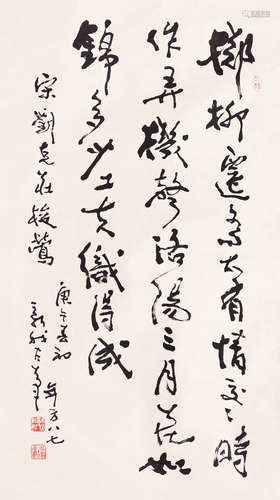 擲柳遷喬太有情交々時
作弄機聲洛陽三月花如
錦多少工夫織得成
宋劉克莊梭鶯
庚午春初
年方八七
新我左筆